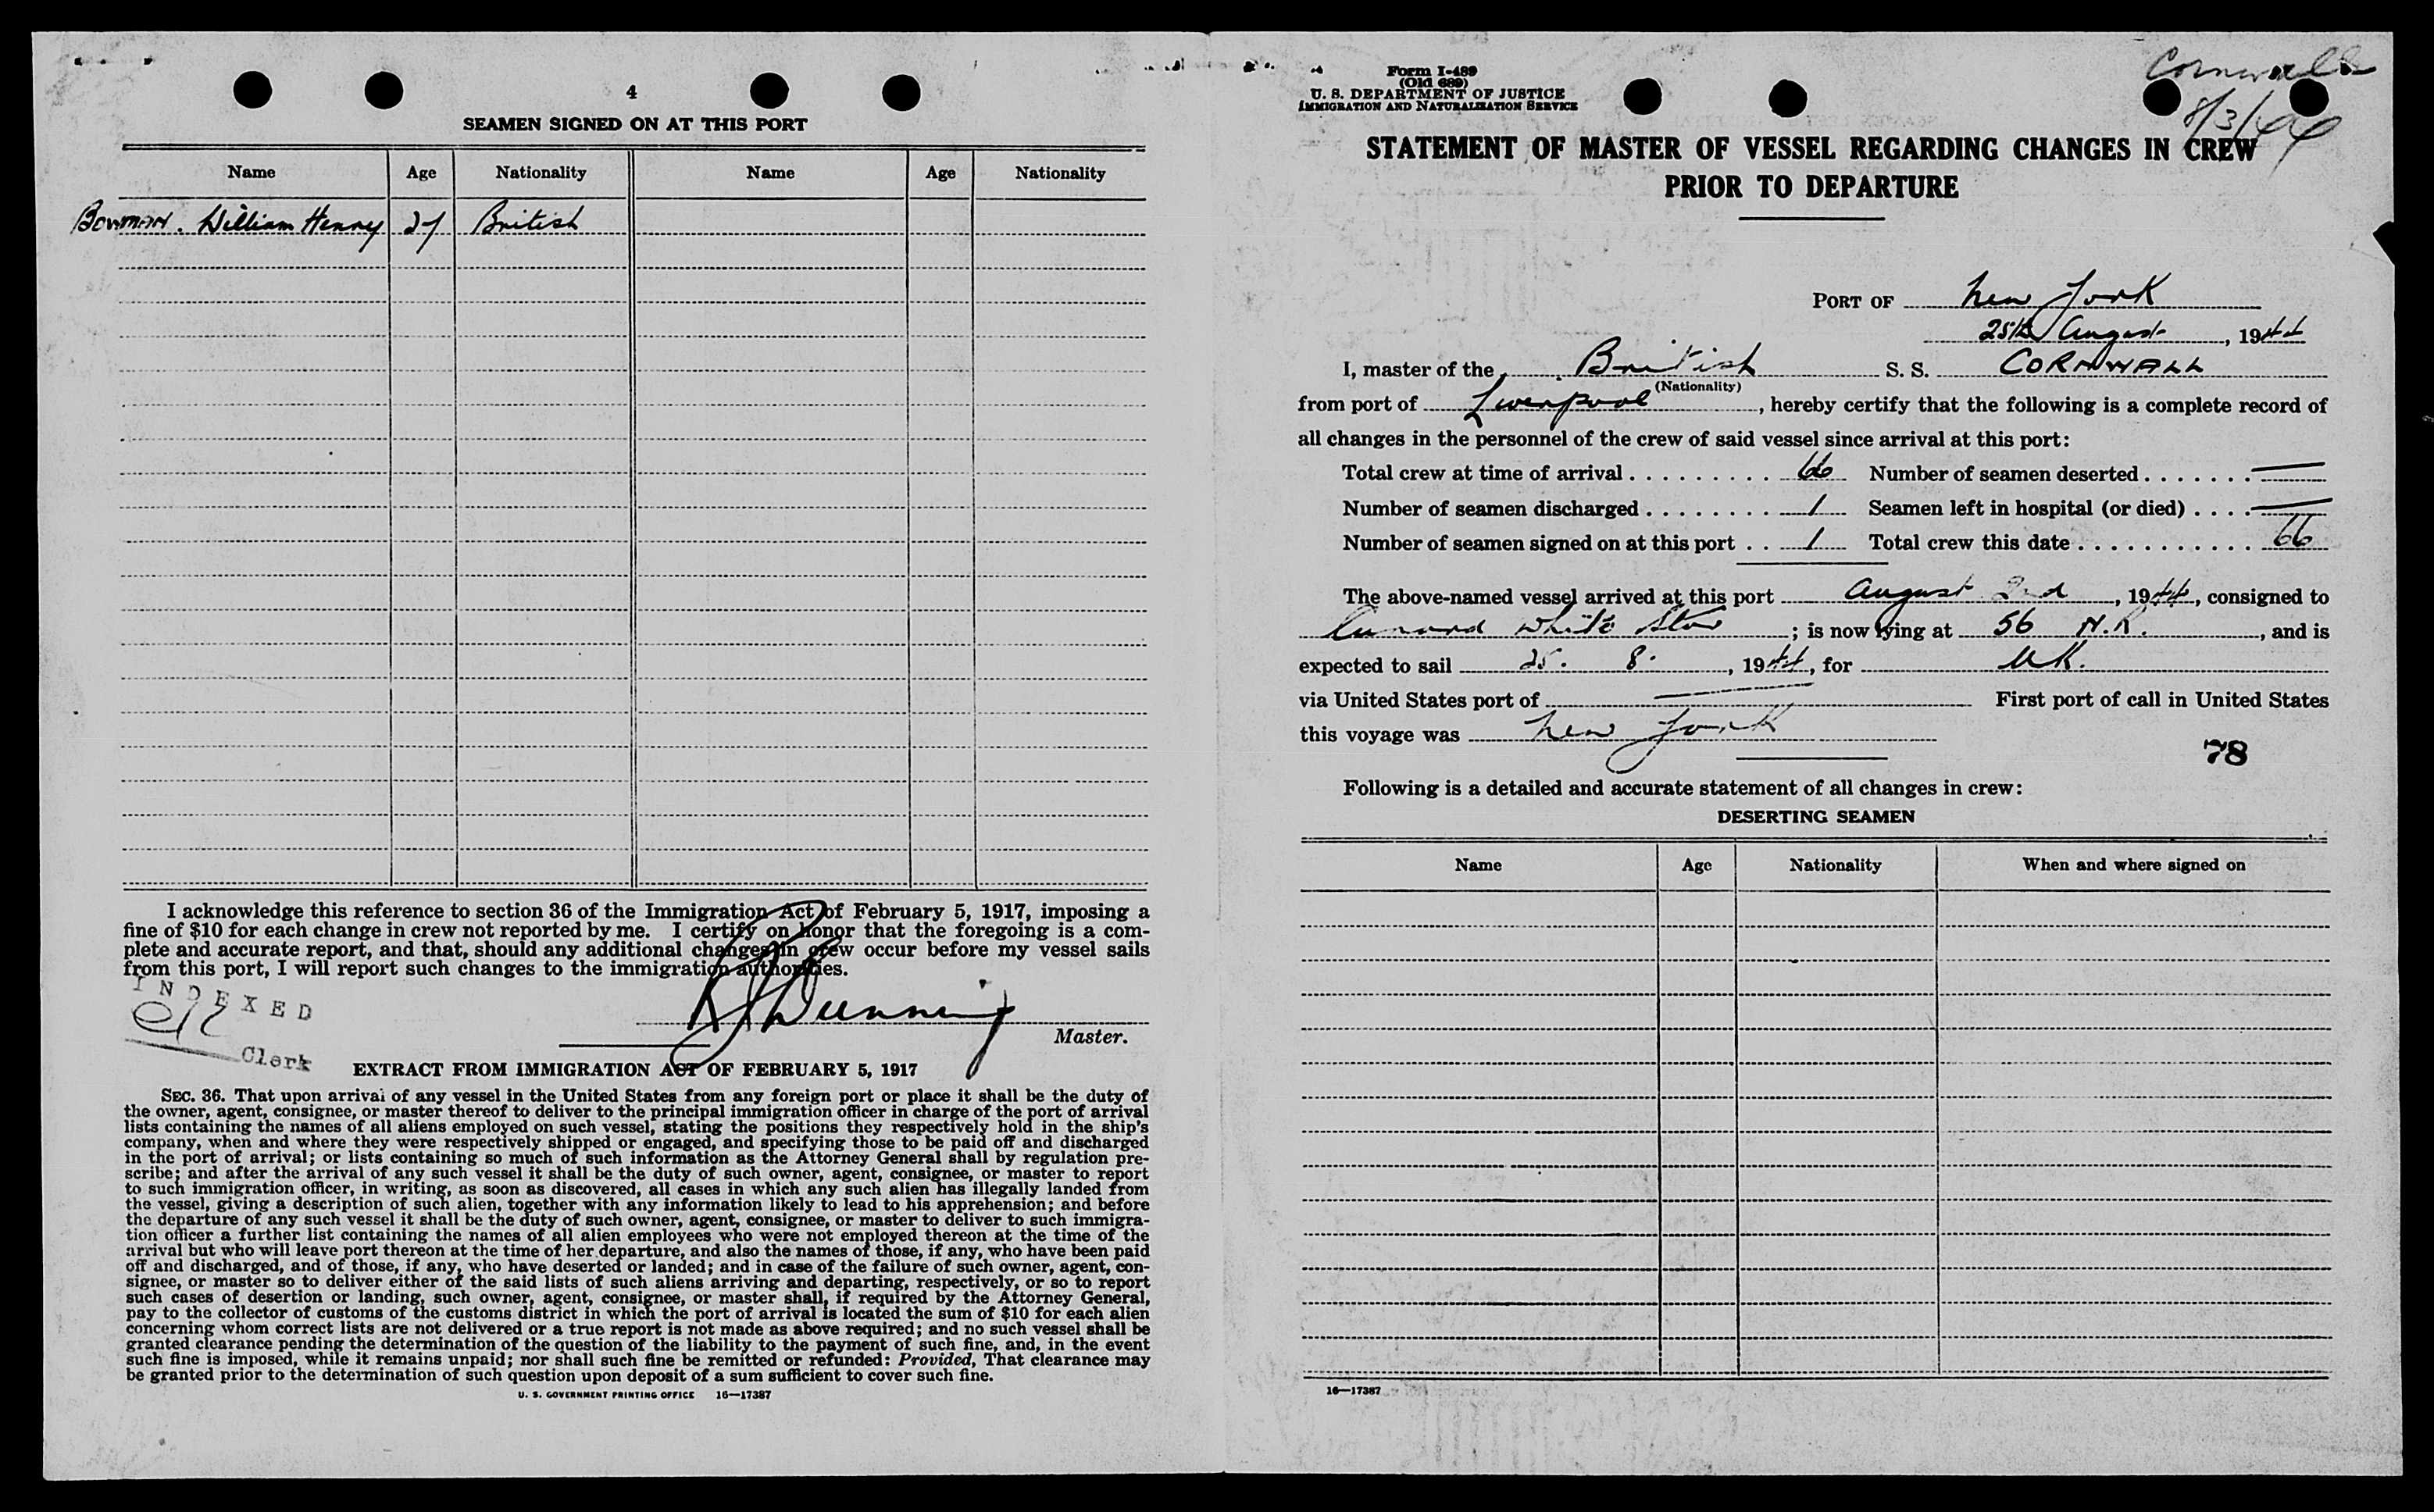 4
SEAMEN SIGNED ON AT THIS PORT
Name Age Nationality Name Age Nationality
Bowman. William Henry 27 British
I acknowledge this reference to section 36 of the Immigration Act of February 5, 1917, imposing a
fine of $10 for each change in crew not reported by me. I certify on honor that the foregoing is a com-
plete and accurate report, and that, should any additional changes in crew occur before my vessel sails
from this port, I will report such changes to the immigration authorities.
INDEXED
Clerk
Dunning
Master.
EXTRACT FROM IMMIGRATION ACT OF FEBRUARY 5, 1917
SEC. 36. That upon arrival of any vessel in the United States from any foreign port or place it shall be the duty of
the owner, agent, consignee, or master thereof to deliver to the principal immigration officer in charge of the port of arrival
lists containing the names of all aliens employed on such vessel, stating the positions they respectively hold in the ship's
company, when and where they were respectively shipped or engaged, and specifying those to be paid off and discharged
in the port of arrival; or lists containing so much of such information as the Attorney General shall by regulation pre-
scribe; and after the arrival of any such vessel it shall be the duty of such owner, agent, consignee, or master to report
to such immigration officer, in writing, as soon as discovered, all cases in which any such alien has illegally landed from
the vessel, giving a description of such alien, together with any information likely to lead to his apprehension; and before
the departure of any such vessel it shall be the duty of such owner, agent, consignee, or master to deliver to such immigra-
tion officer a further list containing the names of all alien employees who were not employed thereon at the time of the
arrival but who will leave port thereon at the time of her departure, and also the names of those, if any, who have been paid
off and discharged, and of those, if any, who have deserted or landed; and in case of the failure of such owner, agent, con-
signee, or master so to deliver either of the said lists of such aliens arriving and departing, respectively, or so to report
such cases of desertion or landing, such owner, agent, consignee, or master shall, if required by the Attorney General,
pay to the collector of customs of the customs district in which the port of arrival is located the sum of $10 for each alien
concerning whom correct lists are not delivered or a true report is not made as above required; and no such vessel shall be
granted clearance pending the determination of the question of the liability to the payment of such fine, and, in the event
such fine is imposed, while it remains unpaid; nor shall such fine be remitted or refunded: Provided, That clearance may
be granted prior to the determination of such question upon deposit of a sum sufficient to cover such fine.
U. S. GOVERNMENT PRINTING OFFICE 16—17387
Form I-489
(Old 689)
U. S. DEPARTMENT OF JUSTICE
IMMIGRATION AND NATURALIZATION SERVICE
Cornwall
8/3/44
STATEMENT OF MASTER OF VESSEL REGARDING CHANGES IN CREW
PRIOR TO DEPARTURE
PORT OF New York
25th August, 1944
I, master of the British S. S. CORNWALL
(Nationality)
from port of Liverpool, hereby certify that the following is a complete record of
all changes in the personnel of the crew of said vessel since arrival at this port:
Total crew at time of arrival . . . . . . . . . . 66 Number of seamen deserted . . . . . . . —
Number of seamen discharged . . . . . . . . 1 Seamen left in hospital (or died) . . . . —
Number of seamen signed on at this port . . 1 Total crew this date . . . . . . . . . . . . 66
The above-named vessel arrived at this port August 2nd, 1944, consigned to
Cunard White Star; is now lying at 56 N.R., and is
expected to sail 25. 8., 1944, for UK.
via United States port of — First port of call in United States
this voyage was New York
78
Following is a detailed and accurate statement of all changes in crew:
DESERTING SEAMEN
Name Age Nationality When and where signed on
16—17387